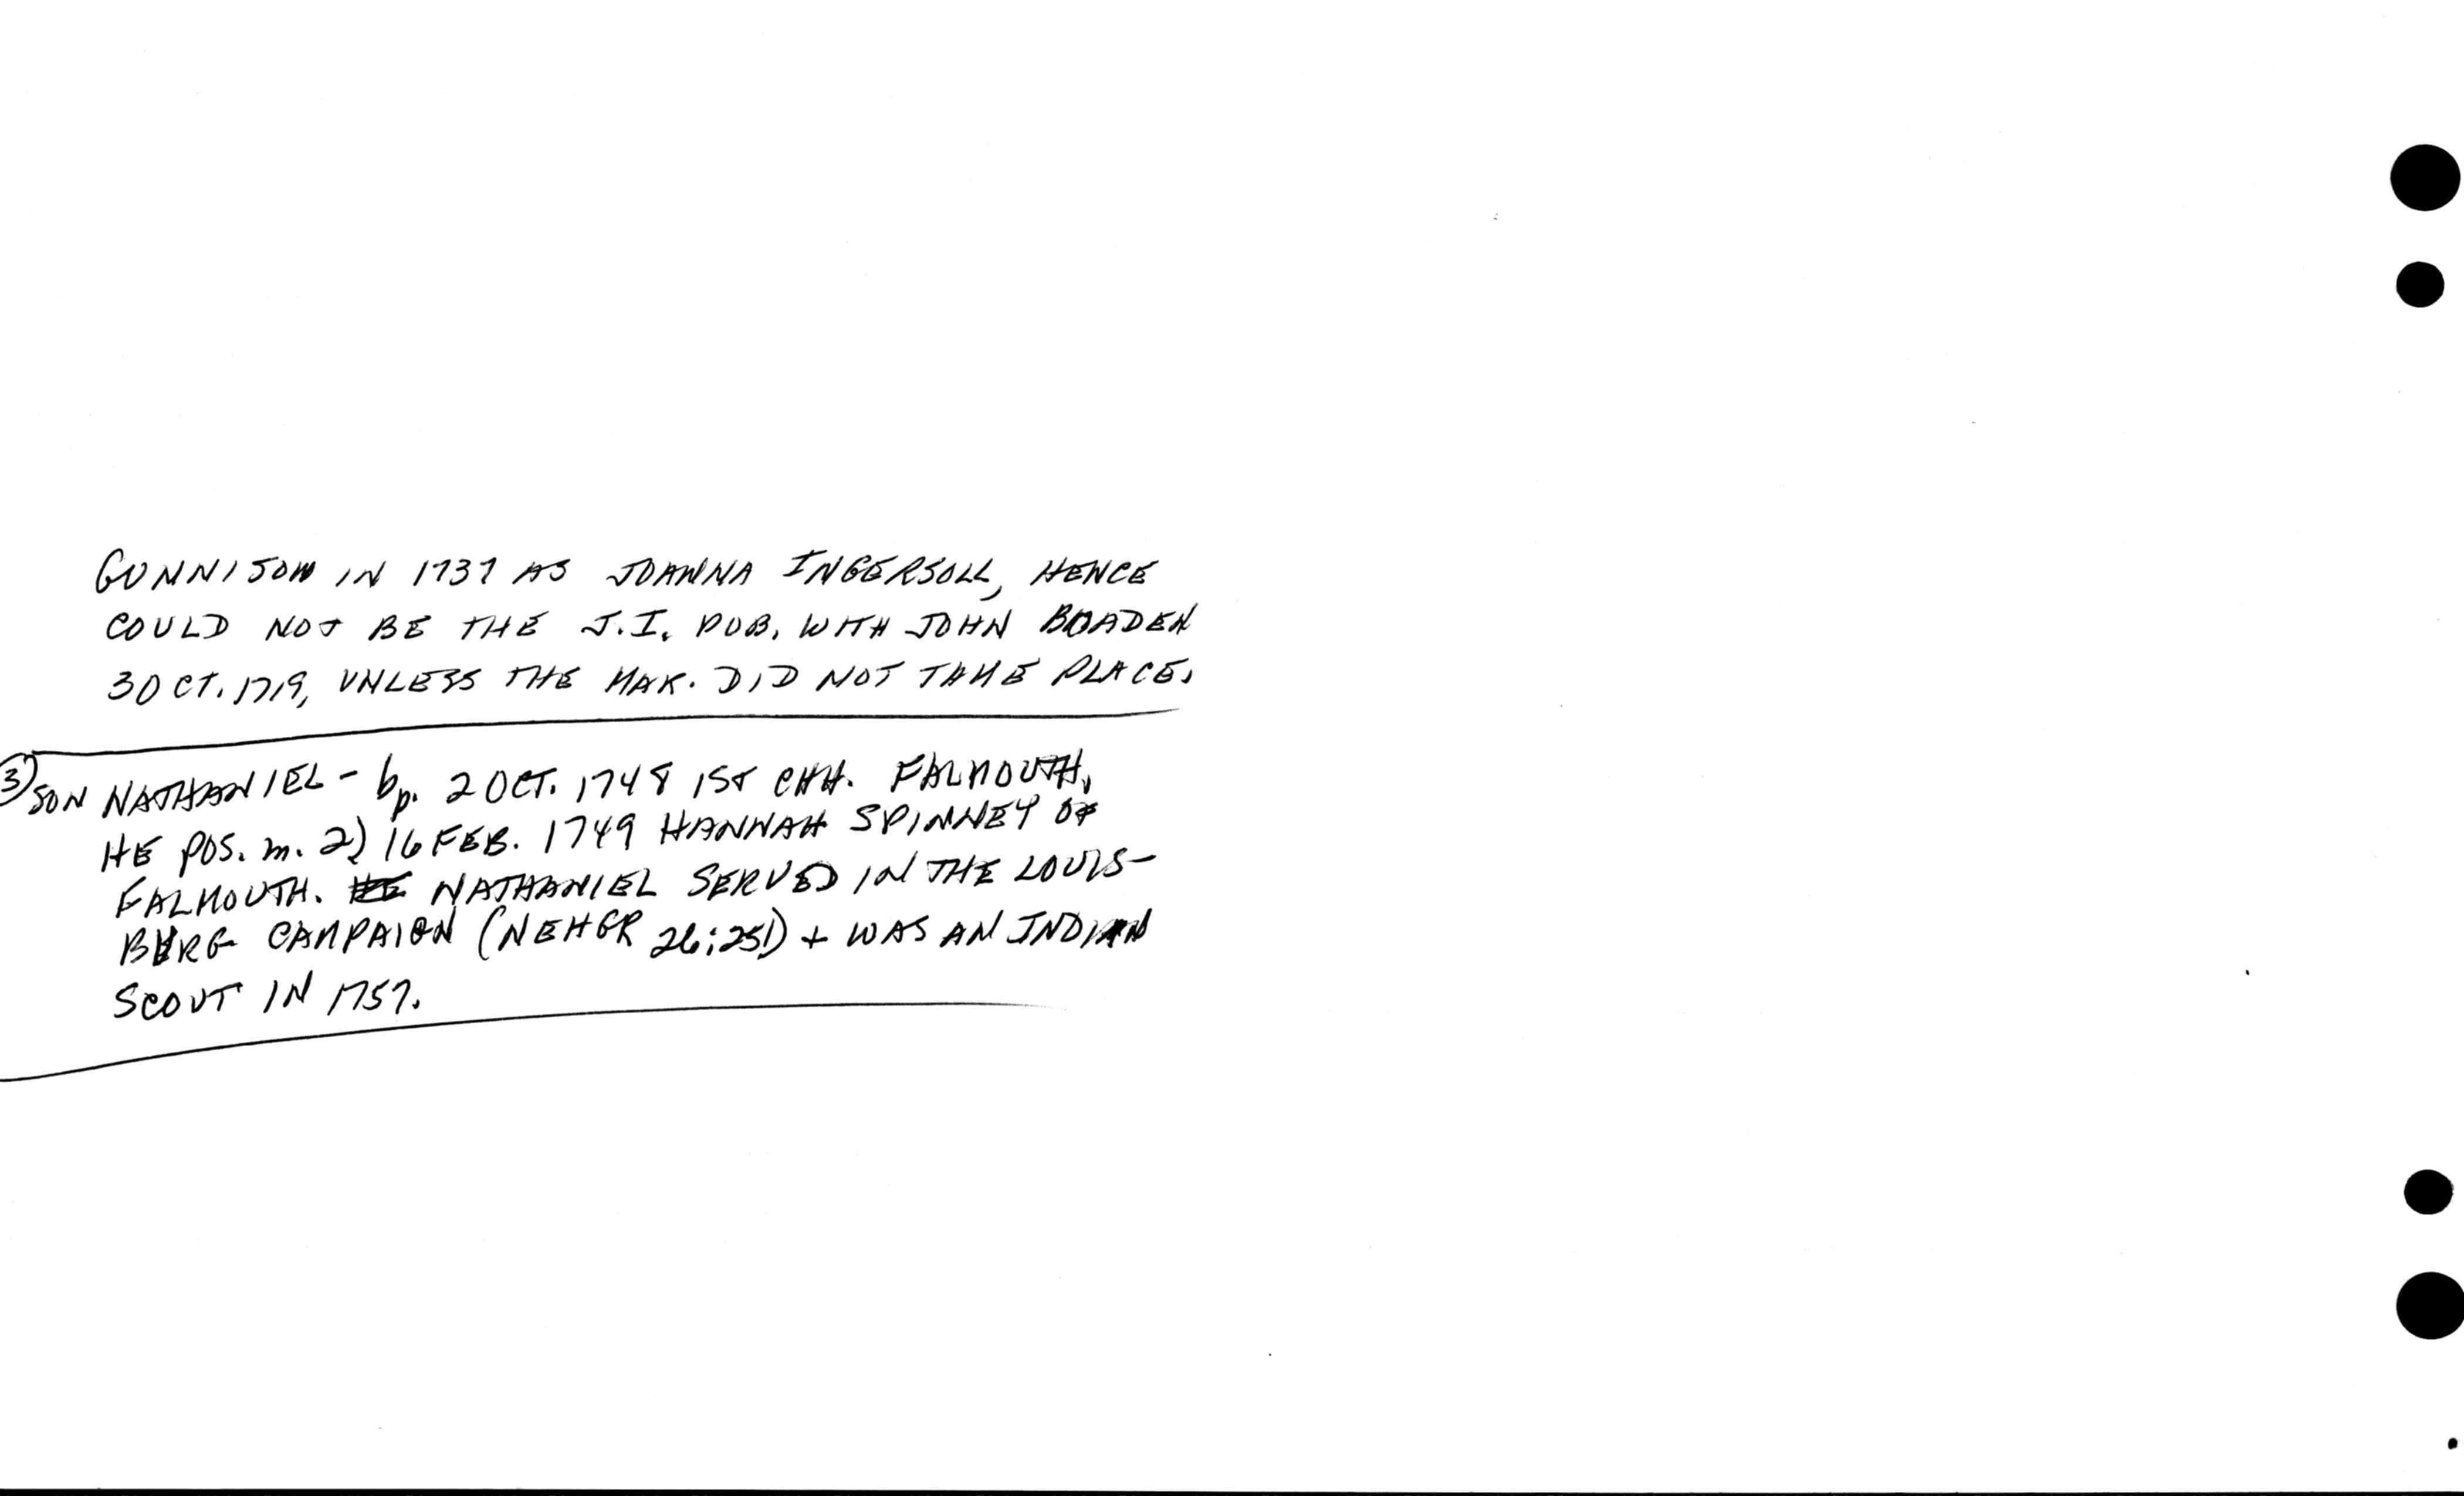 GUNNISON IN 1737 AS JOANNA INGERSOLL, HENCE
COULD NOT BE THE J.I. PUB. WITH JOHN BOADEN
3 OCT. 1719, UNLESS THE MAR. DID NOT TAKE PLACE.
③ SON NATHANIEL - bp. 2 OCT. 1748 1ST CHH. FALMOUTH,
HE POS. m. 2) 16 FEB. 1749 HANNAH SPINNEY OF
FALMOUTH. HE NATHANIEL SERVED IN THE LOUIS-
BURG CAMPAIGN (NEHGR 26:251) + WAS AN INDIAN
SCOUT IN 1757.